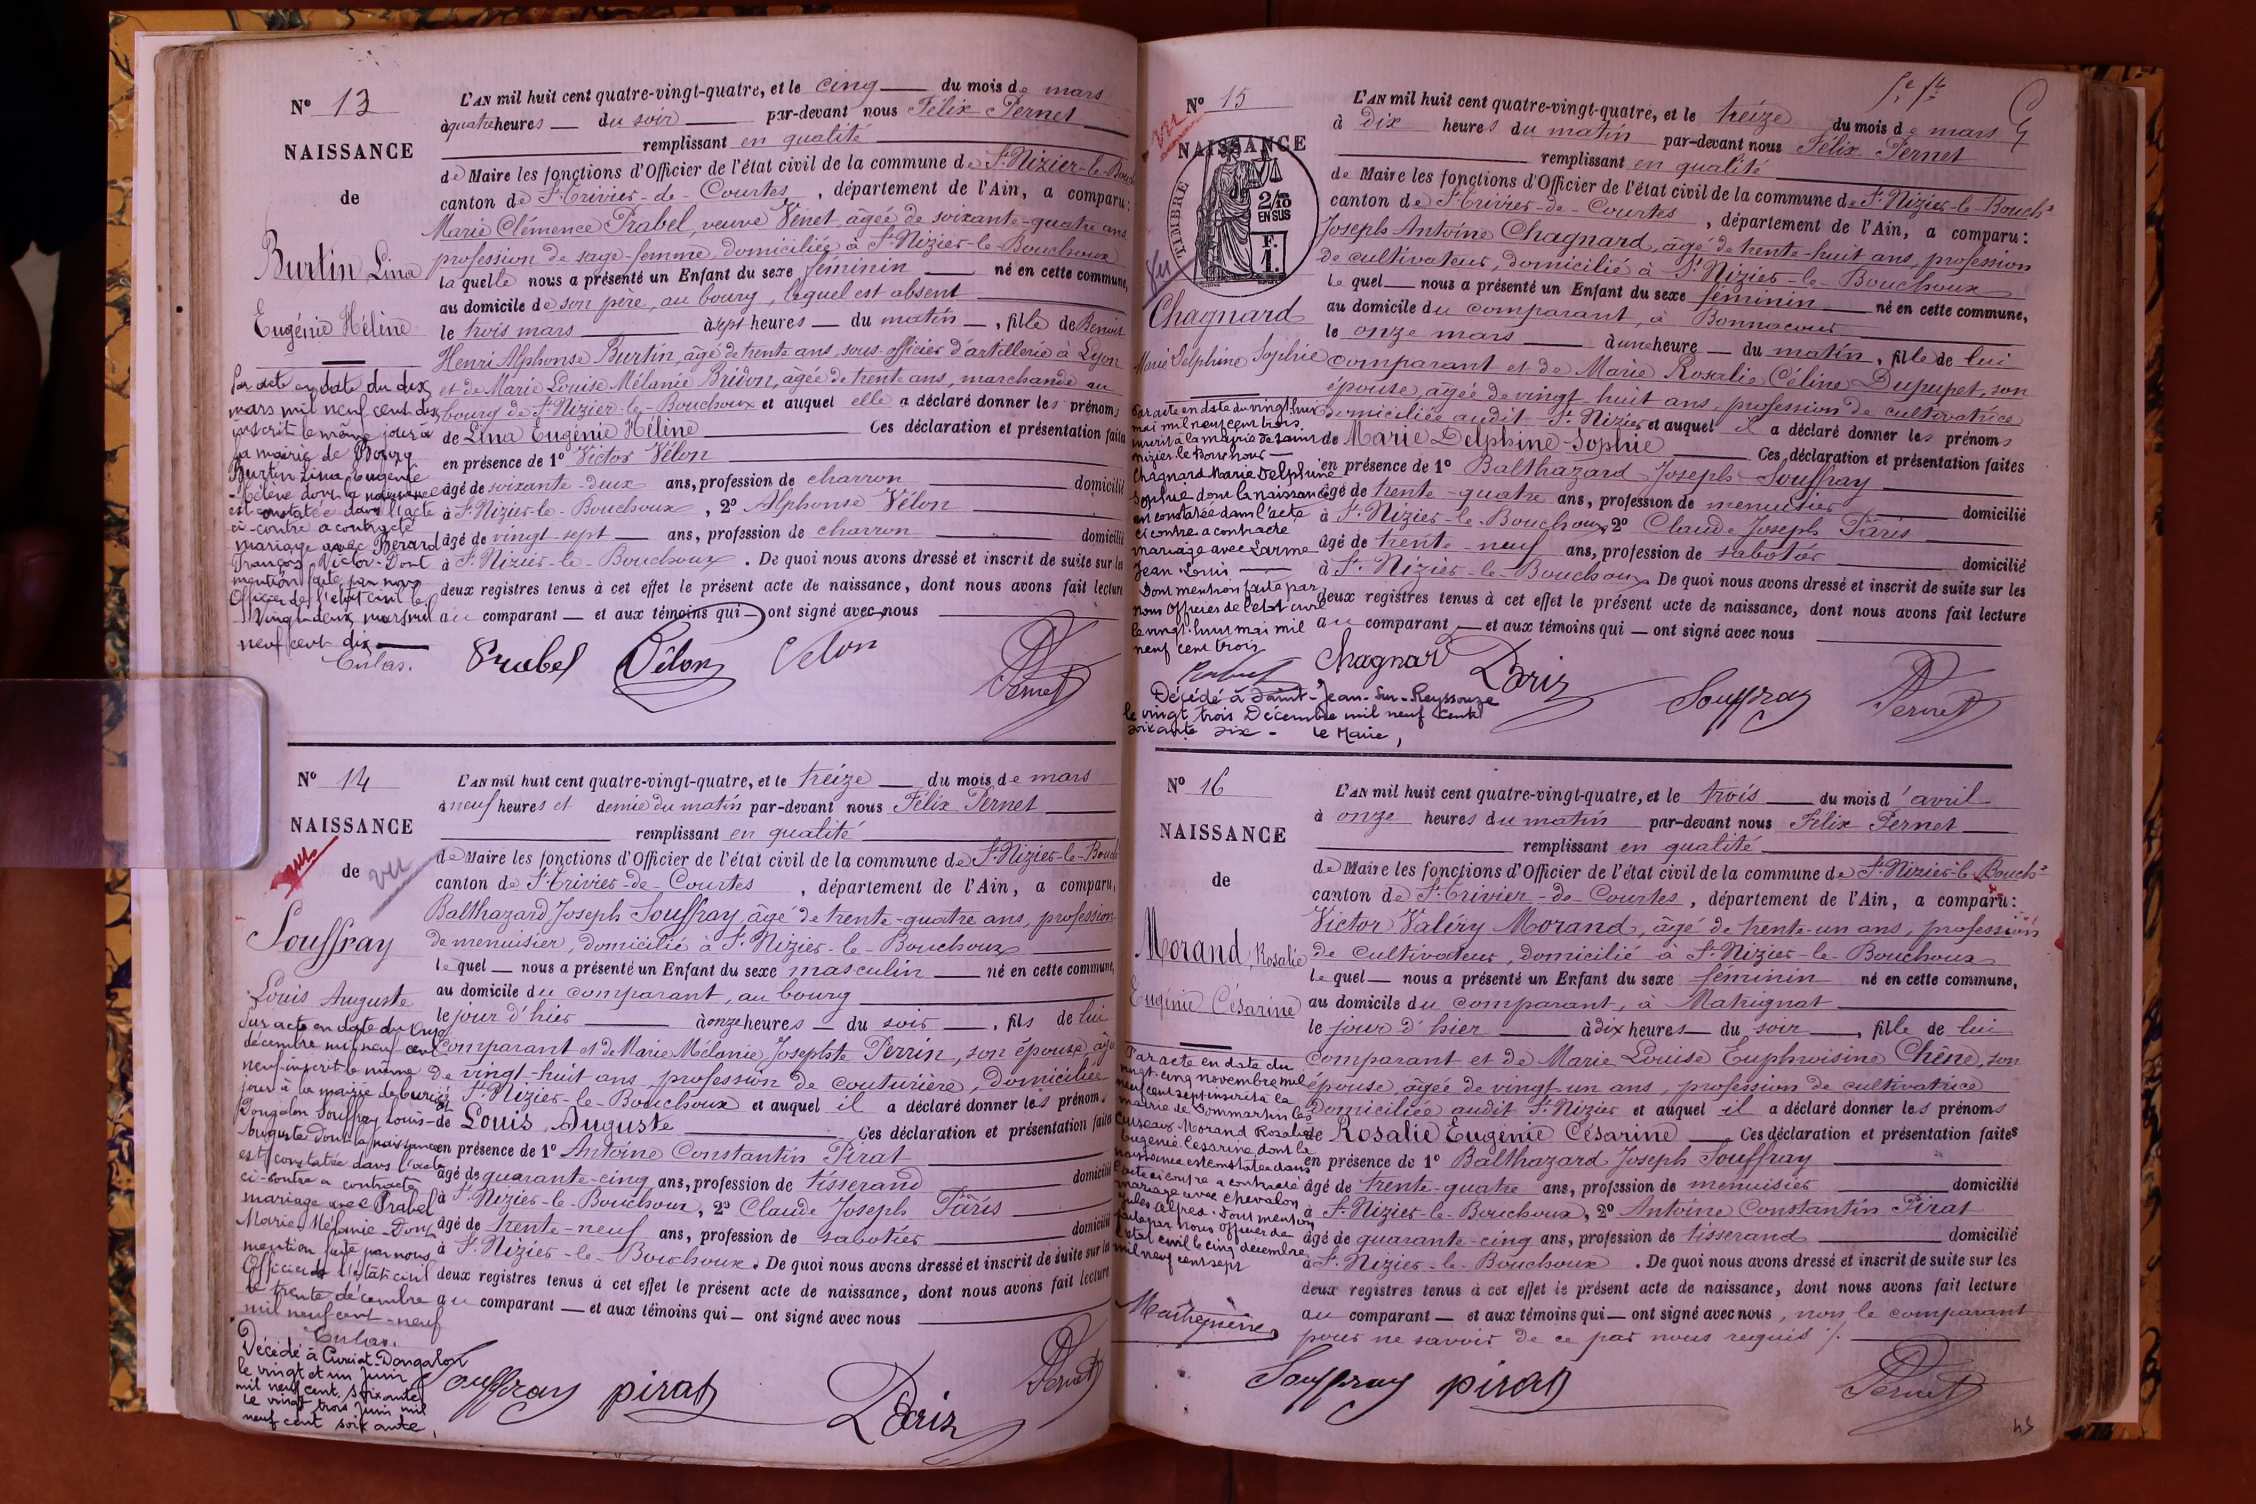 N° 13
NAISSANCE
de
Burtin, Lina
Eugénie Hélène
Par acte en date du dix
mars mil neuf cent dix
inscrit le même jour à
la mairie de Bourg
Burtin Lina Eugénie
Hélène dont la naissance
est constatée dans l'acte
ci-contre a contracté
mariage avec Bérard
François Victor. Dont
mention faite par nous
Officier de l'état civil le
vingt-deux mars mil
neuf cent dix
L'AN mil huit cent quatre-vingt-quatre, et le cinq du mois de mars
à quatre heures du soir par-devant nous Félix Pernet
remplissant en qualité
de Maire les fonctions d'Officier de l'état civil de la commune de St Nizier-le-Bouch
canton de St Trivier-de-Courtes, département de l'Ain, a comparu:
Marie Clémence Prabel, veuve Venet, âgée de soixante-quatre ans
profession de sage-femme, domiciliée à St Nizier-le-Bouchoux
laquelle nous a présenté un Enfant du sexe féminin né en cette commune,
au domicile de son père, au bourg, lequel est absent
le trois mars à sept heures du matin, fille de Benoit
Henri Alphonse Burtin, âgé de trente ans, sous-officier d'artillerie à Lyon
et de Marie Louise Mélanie Bridon, âgée de trente ans, marchande au
bourg de St Nizier-le-Bouchoux et auquel elle a déclaré donner les prénoms
de Lina Eugénie Hélène Ces déclaration et présentation faites
en présence de 1° Victor Vélon
âgé de soixante-deux ans, profession de charron domicilié
à St Nizier-le-Bouchoux, 2° Alphonse Vélon
âgé de vingt-sept ans, profession de charron domicilié
à St Nizier-le-Bouchoux. De quoi nous avons dressé et inscrit de suite sur les
deux registres tenus à cet effet le présent acte de naissance, dont nous avons fait lecture
au comparant et aux témoins qui ont signé avec nous
Prabel Vélon Velon Pernet
N° 14
NAISSANCE
de vu
vu
Souffray
Louis Auguste
Par acte en date du onze
décembre mil neuf cent
neuf inscrit le même
jour à la mairie de Curciat
Dongalon Souffray Louis
Auguste dont la naissance
est constatée dans l'acte
ci-contre a contracté
mariage avec Prabel
Marie Mélanie. Dont
mention faite par nous
Officier de l'état civil
le trente décembre
mil neuf cent neuf
Décédé à Curciat-Dongalon
le vingt et un Juin
mil neuf cent soixante
Le vingt trois Juin mil
neuf cent soixante,
L'AN mil huit cent quatre-vingt-quatre, et le treize du mois de mars
à neuf heures et demie du matin par-devant nous Félix Pernet
remplissant en qualité
de Maire les fonctions d'Officier de l'état civil de la commune de St Nizier-le-Bouch
canton de St Trivier-de-Courtes, département de l'Ain, a comparu,
Balthazard Joseph Souffray, âgé de trente-quatre ans, profession
de menuisier, domicilié à St Nizier-le-Bouchoux
lequel nous a présenté un Enfant du sexe masculin né en cette commune,
au domicile du comparant, au bourg
le jour d'hier à onze heures du soir, fils de lui
comparant et de Marie Mélanie Josephte Perrin, son épouse, âgée
de vingt-huit ans, profession de couturière, domiciliée
à St Nizier-le-Bouchoux et auquel il a déclaré donner les prénoms
de Louis Auguste Ces déclaration et présentation faites
en présence de 1° Antoine Constantin Pirat
âgé de quarante-cinq ans, profession de tisserand domicilié
à St Nizier-le-Bouchoux, 2° Claude Joseph Pâris
âgé de trente-neuf ans, profession de sabotier domicilié
à St Nizier-le-Bouchoux. De quoi nous avons dressé et inscrit de suite sur les
deux registres tenus à cet effet le présent acte de naissance, dont nous avons fait lecture
au comparant et aux témoins qui ont signé avec nous
Souffray pirat Paris Pernet
N° 15
vu
NAISSANCE
TIMBRE
2/10
EN SUS
F.
1.
vu
Chagnard
Marie Delphine Sophie
Par acte en date du vingt huit
mai mil neuf cent trois
inscrit à la mairie de Saint
Nizier le Bouchoux
Chagnard Marie Delphine
Sophie dont la naissance
est constatée dans l'acte
ci contre a contracté
mariage avec Larme
Jean Louis
Dont mention faite par
nous Officier de l'état civil
le vingt-huit mai mil
neuf cent trois
Décédé à Saint-Jean-sur-Reyssouze
le vingt trois Décembre mil neuf cent
soixante six - Le Maire,
L'AN mil huit cent quatre-vingt-quatre, et le treize du mois de mars
à dix heures du matin par-devant nous Félix Pernet
remplissant en qualité
de Maire les fonctions d'Officier de l'état civil de la commune de St Nizier-le-Bouchx
canton de St Trivier-de-Courtes, département de l'Ain, a comparu:
Joseph Antoine Chagnard, âgé de trente-huit ans, profession
de cultivateur, domicilié à St Nizier-le-Bouchoux
lequel nous a présenté un Enfant du sexe féminin né en cette commune,
au domicile du comparant, à Bonnacour
le onze mars à une heure du matin, fille de lui
comparant et de Marie Rosalie Céline Dupupet, son
épouse, âgée de vingt-huit ans, profession de cultivatrice
domiciliée audit St Nizier et auquel il a déclaré donner les prénoms
de Marie Delphine Sophie Ces déclaration et présentation faites
en présence de 1° Balthazard Joseph Souffray
âgé de trente-quatre ans, profession de menuisier domicilié
à St Nizier-le-Bouchoux, 2° Claude Joseph Pâris
âgé de trente-neuf ans, profession de sabotier domicilié
à St Nizier-le-Bouchoux. De quoi nous avons dressé et inscrit de suite sur les
deux registres tenus à cet effet le présent acte de naissance, dont nous avons fait lecture
au comparant et aux témoins qui ont signé avec nous
Chagnard Paris Souffray Pernet
N° 16
NAISSANCE
de
Morand, Rosalie
Eugénie Césarine
Par acte en date du
vingt-cinq novembre mil
neuf cent sept inscrit à la
mairie de Dommartin les
Cuiseaux Morand Rosalie
Eugénie Césarine dont la
naissance est constatée dans
l'acte ci contre a contracté
mariage avec Chevalon
Jules Alfred. Dont mention
faite par nous Officier de
l'état civil le cinq décembre
mil neuf cent sept
L'AN mil huit cent quatre-vingt-quatre, et le trois du mois d'avril
à onze heures du matin par-devant nous Félix Pernet
remplissant en qualité
de Maire les fonctions d'Officier de l'état civil de la commune de St Nizier-le-Bouchx
canton de St Trivier-de-Courtes, département de l'Ain, a comparu:
Victor Valéry Morand, âgé de trente-un ans, profession
de cultivateur, domicilié à St Nizier-le-Bouchoux
lequel nous a présenté un Enfant du sexe féminin né en cette commune,
au domicile du comparant, à Matrignat
le jour d'hier à dix heures du soir, fille de lui
comparant et de Marie Louise Euphroisine Chêne, son
épouse, âgée de vingt-un ans, profession de cultivatrice
domiciliée audit St Nizier et auquel il a déclaré donner les prénoms
de Rosalie Eugénie Césarine Ces déclaration et présentation faites
en présence de 1° Balthazard Joseph Souffray
âgé de trente-quatre ans, profession de menuisier domicilié
à St Nizier-le-Bouchoux, 2° Antoine Constantin Pirat
âgé de quarante-cinq ans, profession de tisserand domicilié
à St Nizier-le-Bouchoux. De quoi nous avons dressé et inscrit de suite sur les
deux registres tenus à cet effet le présent acte de naissance, dont nous avons fait lecture
au comparant et aux témoins qui ont signé avec nous, non le comparant
pour ne savoir de ce par nous requis ./.
Souffray pirat Pernet